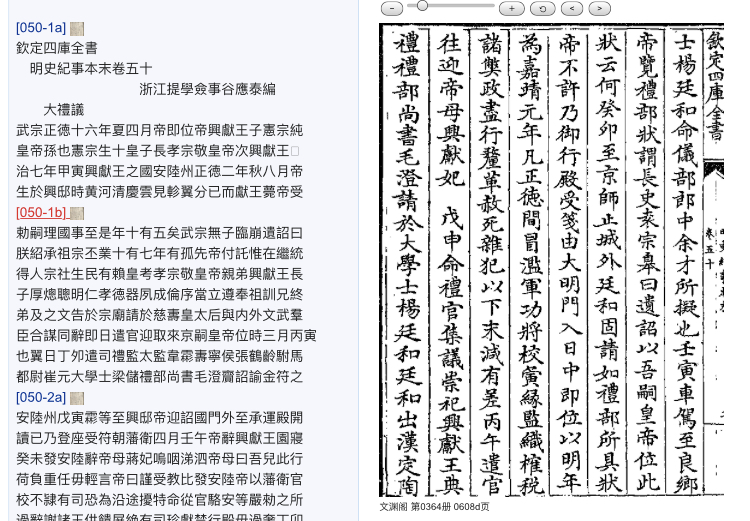 [050-1a]
欽定四庫全書
明史紀事本末卷五十
浙江提學僉事谷應泰編
大禮議
武宗正德十六年夏四月帝即位帝興獻王子憲宗純
皇帝孫也憲宗生十皇子長孝宗敬皇帝次興獻王□
治七年甲寅興獻王之國安陸州正德二年秋八月帝
生於興邸時黄河清慶雲見軫翼分已而獻王薨帝受
[050-1b]
勅嗣理國事至是年十有五矣武宗無子臨崩遺詔曰
朕紹承祖宗丕業十有七年有孤先帝付託惟在繼統
得人宗社生民有賴皇考孝宗敬皇帝親弟興獻王長
子厚熜聰明仁孝德器夙成倫序當立遵奉祖訓兄終
弟及之文告於宗廟請於慈壽皇太后與内外文武羣
臣合謀同辭即日遣官迎取來京嗣皇帝位時三月丙寅
也翼日丁夘遣司禮監太監韋霦壽寧侯張鶴齡駙馬
都尉崔元大學士梁儲禮部尚書毛澄齎詔諭金符之
[050-2a]
安陸州戊寅霦等至興邸帝迎詔國門外至承運殿開
讀已乃登座受符朝藩衛四月壬午帝辭興獻王園寢
癸未發安陸辭帝母蔣妃嗚咽涕泗帝母曰吾兒此行
荷負重任毋輕言帝曰謹受教比發安陸帝以藩衛官
校不隷有司恐為沿途擾特命從官駱安等嚴勅之所
欽定四庫全書
卷五十
士楊廷和命儀部郎中余才所擬也壬寅車駕至良鄉
帝覽禮部狀謂長史袁宗臯曰遺詔以吾嗣皇帝位此
狀云何癸卯至京師止城外廷和固請如禮部所具狀
帝不許乃御行殿受箋由大明門入日中即位以明年
為嘉靖元年凡正德間冒濫軍功將校寅緣監織榷税
諸獘政盡行釐革赦死雜犯以下末減有差丙午遣官
往迎帝母興獻妃 戊申命禮官集議崇祀興獻王典
禮禮部尚書毛澄請於大學士楊廷和廷和出漢定陶
文渊阁 第0364册 0608d页